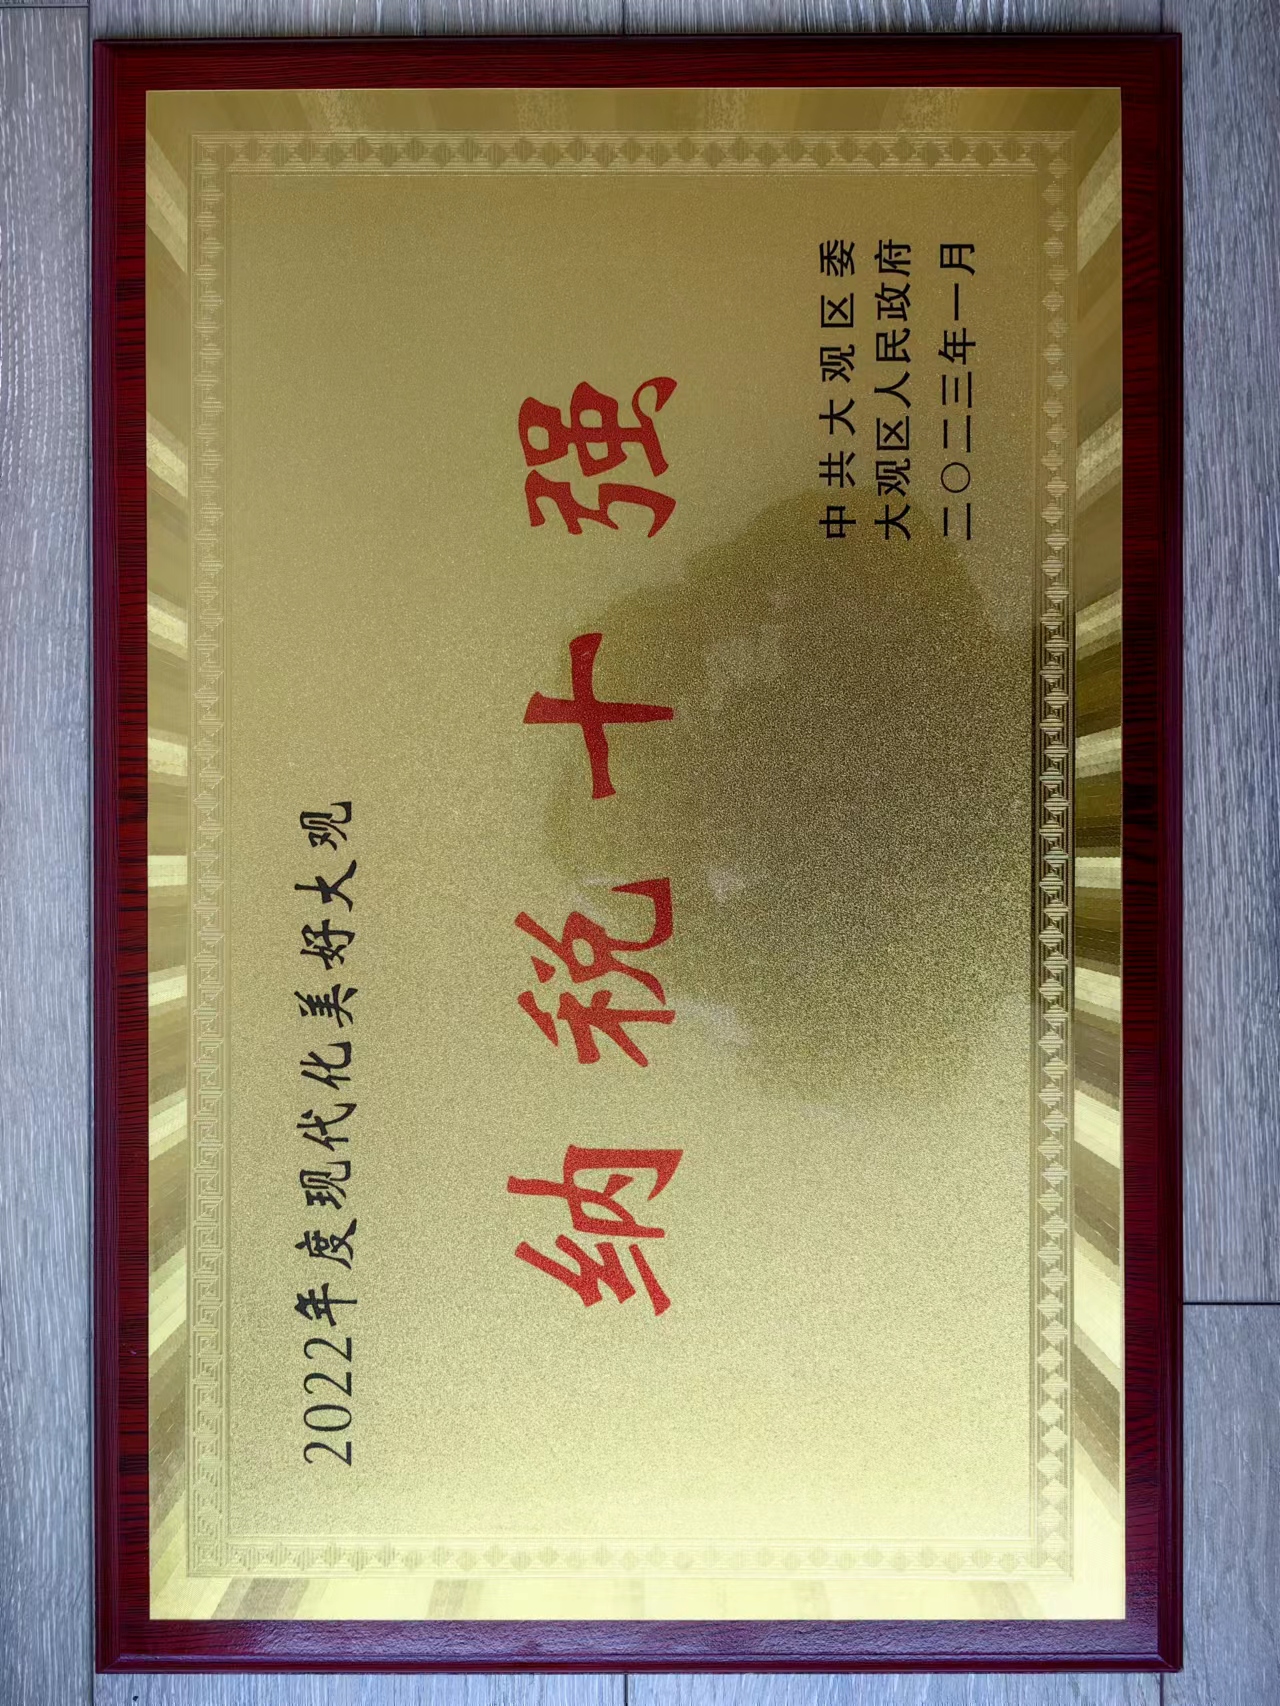 2022年度现代化美好大观
纳税十强
中共大观区委
大观区人民政府
二〇二三年一月